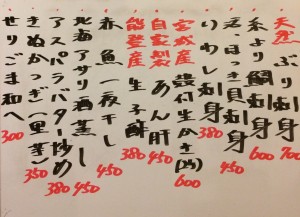 天然 ぶり 刺身 700
糸より鯛刺身 600
活、ほっき貝刺身 450
いわし刺身 380
宮城産 殻付生かき(2ヶ) 600
自家製 あん肝 450
能登産 生子酢 380
赤魚一夜干し 450
北海アサリ酒蒸し 450
アスパラバター炒め 380
きぬかつぎ(里芋) 350
せりごま和へ 300